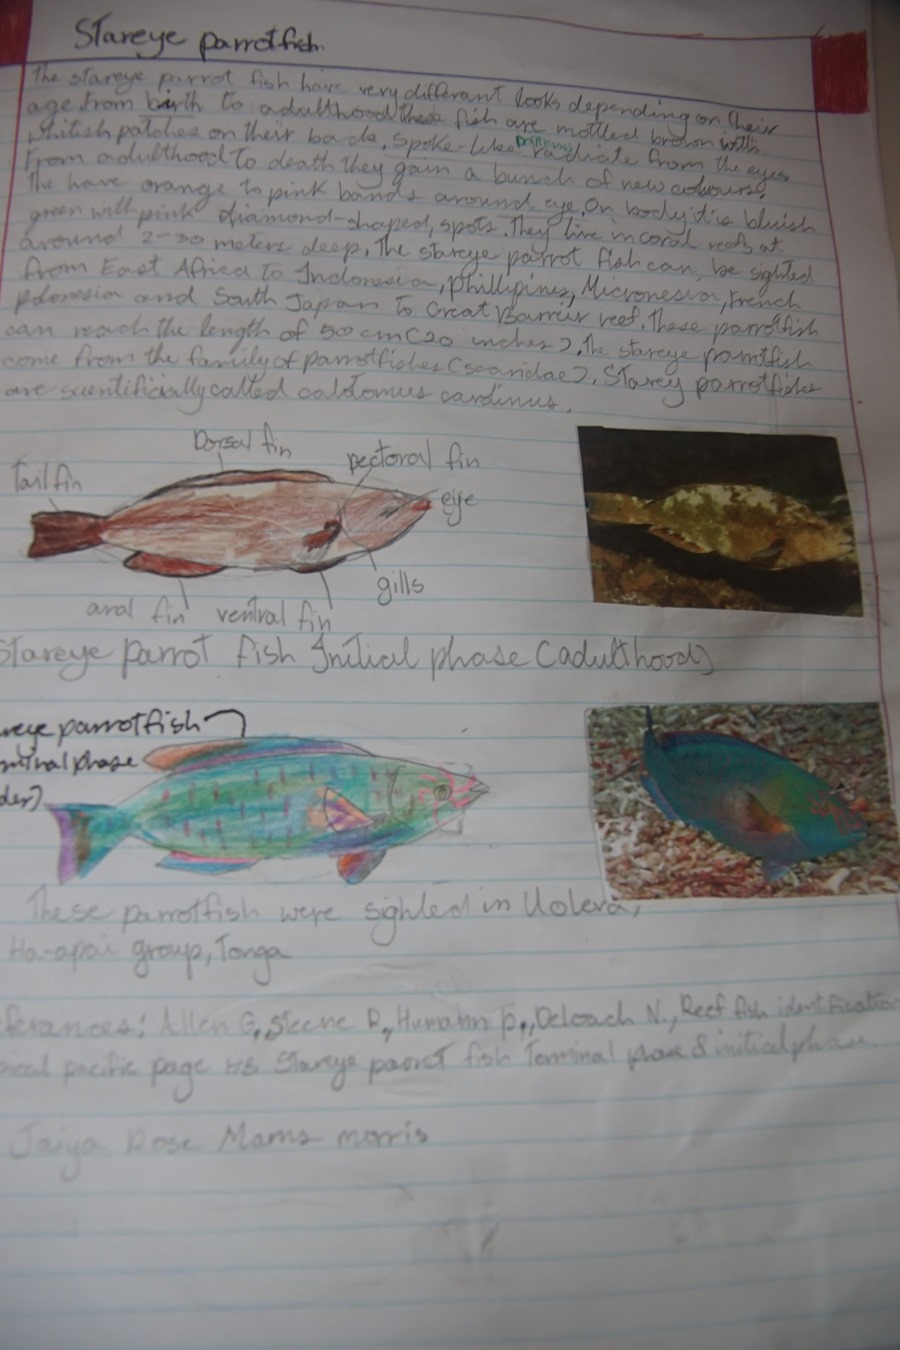 Stareye parrotfish.
The stareye parrot fish have very different looks depending on their
age. From birth to adulthood these fish are mottled brown with
whitish patches on their back. Spoke-like patterns radiate from the eyes
From adulthood to death they gain a bunch of new colours.
The have orange to pink bands around eye. On body it is bluish
green with pink diamond-shaped, spots. They live in coral reefs at
around 2-30 meters deep. The stareye parrot fish can be sighted
from East Africa to Indonesia, Phillipines, Micronesia, French
and South Japan to Great Barrier reef. These parrotfish
can reach the length of 50 cm (20 inches). The stareye parrotfish
come from the family of parrotfishes (scaridae). Starey parrotfishes
are scientificially called calotomus carolinus.
Dorsal fin
pectoral fin
Tail fin
eye
gills
anal fin
ventral fin
Stareye parrot fish Initial phase (adulthood)
reye parrotfish
minal phase
der)
These parrotfish were sighted in Uoleva,
Ha-apai group, Tonga
ferances: Allen G., Steene R., Humann P., Deloach N., Reef fish identification
pical pacific page Stareye parrot fish Terminal phase & initial phase.
Jaiya Rose Mams morris